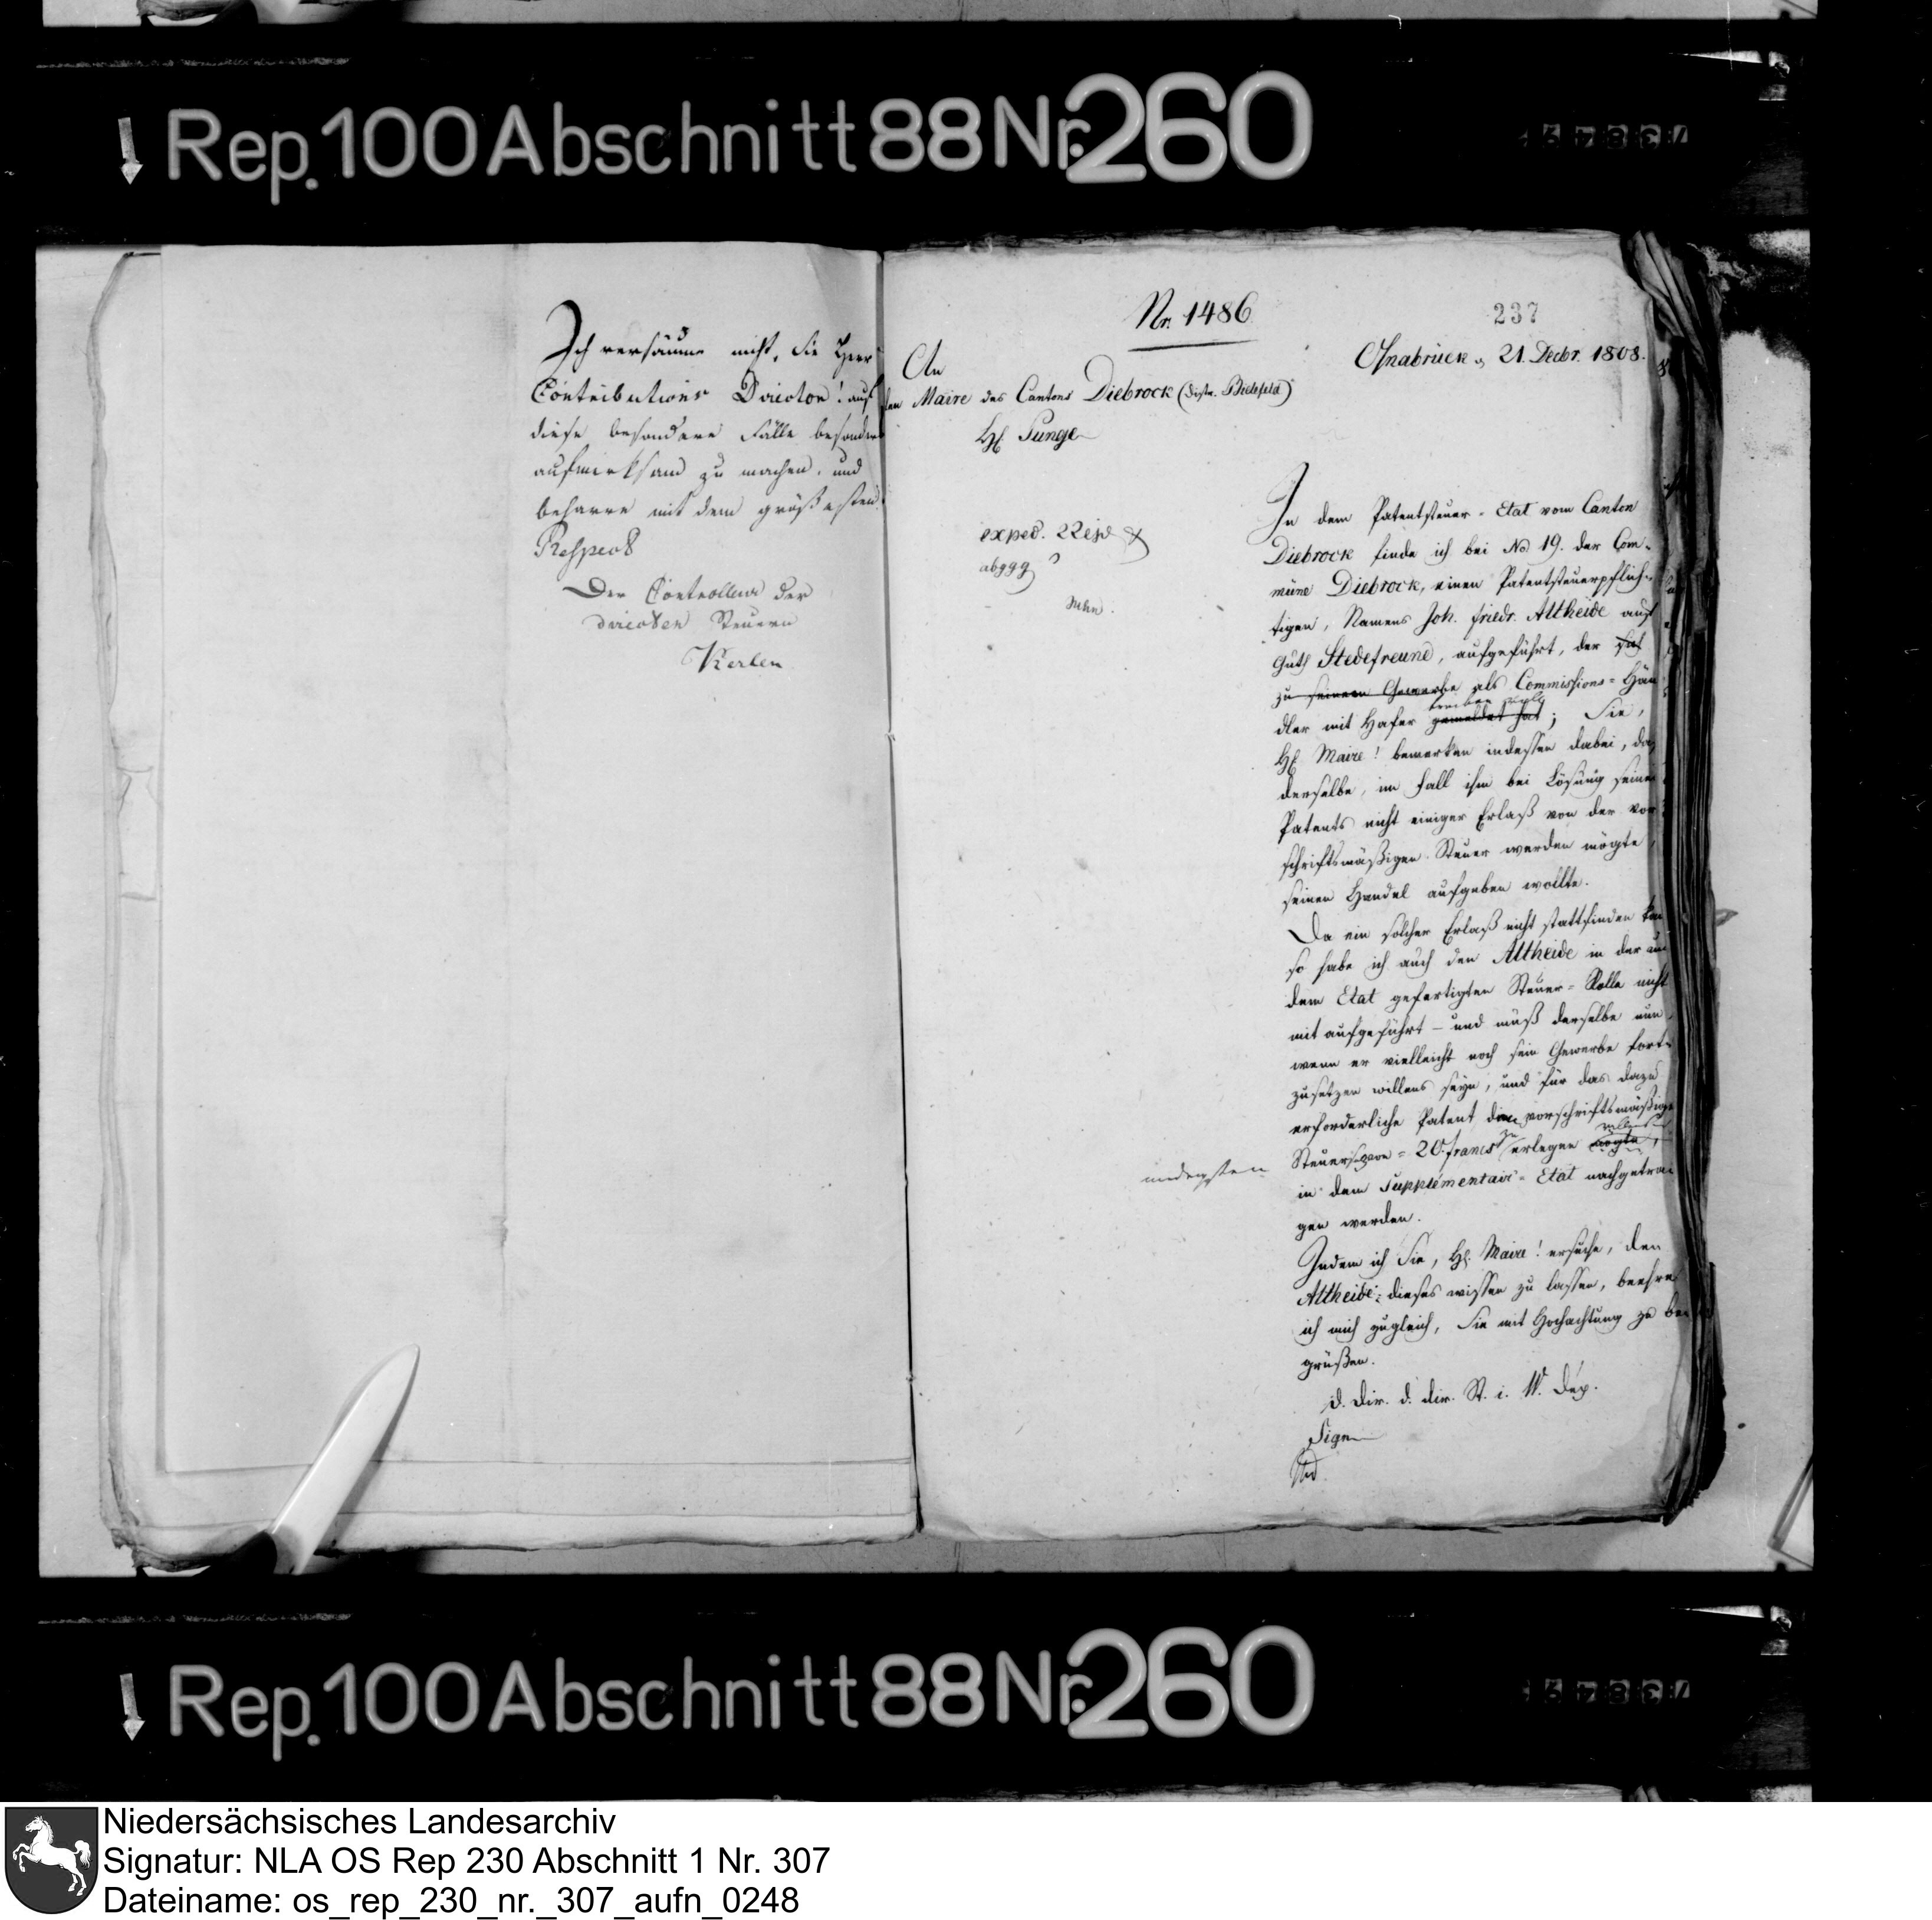 Rep. 100 Abschnitt 88 Nr. 260
Ich versäume nicht, Sie Herr
Contributions Director! auf
diese besondere Fälle besonders
aufmerksam zu machen, und
beharre mit dem größesten
Respect
Der Controlleur der
directen Steuern
Kerlen
Nr. 1486
237
Osnabrück, 21. Decbr. 1808.
An
den Maire des Cantons Diebrock (Distr. Bielefeld)
H. Junge
exped. 22 ej.
In dem Patentsteuer-Etat vom Canton
Diebrock finde ich bei No 19. der Com-
mune Diebrock, einen Patentsteuerpflich-
tigen, Namens Joh. Friedr. Altheide auf
Guth Stedefreund, aufgeführt, der sich
zu seinem Gewerbe als Commissions-Hän
dler mit Hafer gemeldet hat; Sie,
H. Maire! bemerken indessen dabei, daß
derselbe, im Fall ihm bei Lösung seines
Patents nicht einiger Erlaß von der vor
schriftsmäßigen Steuer werden mögte,
seinen Handel aufgeben wollte.
Da ein solcher Erlaß nicht stattfinden kan
so habe ich auch den Altheide in der aus
dem Etat gefertigten Steuer-Rolle nicht
mit aufgeführt – und muß derselbe nun
wenn er vielleicht noch sein Gewerbe fort-
zusetzen willens seyn, und für das dazu
erforderliche Patent die vorschriftsmäßige
Steuer von = 20. francs zu erlegen mögte,
in dem Supplémentair-Etat nachgetra-
gen werden.
Indem ich Sie, H. Maire! ersuche, den
Altheide dieses wissen zu lassen, beehre
ich mich zugleich, Sie mit Hochachtung zu be
grüßen.
d. Dir. d. dir. St. i. W. Dep.
Sign
Rep. 100 Abschnitt 88 Nr. 260
Niedersächsisches Landesarchiv
Signatur: NLA OS Rep 230 Abschnitt 1 Nr. 307
Dateiname: os_rep_230_nr._307_aufn_0248